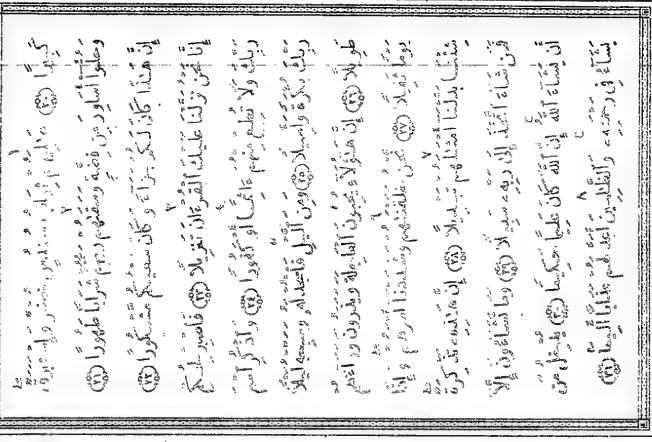 كَبِيرًا (٢٠) عَٰلِيَهُمْ ثِيَابُ سُندُسٍ خُضْرٌ وَإِسْتَبْرَقٌ
وَحُلُّوٓا۟ أَسَاوِرَ مِن فِضَّةٍ وَسَقَىٰهُمْ رَبُّهُمْ شَرَابًا طَهُورًا (٢١)
إِنَّ هَٰذَا كَانَ لَكُمْ جَزَآءً وَكَانَ سَعْيُكُم مَّشْكُورًا (٢٢)
إِنَّا نَحْنُ نَزَّلْنَا عَلَيْكَ ٱلْقُرْءَانَ تَنزِيلًا (٢٣) فَٱصْبِرْ لِحُكْمِ
رَبِّكَ وَلَا تُطِعْ مِنْهُمْ ءَاثِمًا أَوْ كَفُورًا (٢٤) وَٱذْكُرِ ٱسْمَ
رَبِّكَ بُكْرَةً وَأَصِيلًا (٢٥) وَمِنَ ٱلَّيْلِ فَٱسْجُدْ لَهُۥ وَسَبِّحْهُ لَيْلًا
طَوِيلًا (٢٦) إِنَّ هَٰٓؤُلَآءِ يُحِبُّونَ ٱلْعَاجِلَةَ وَيَذَرُونَ وَرَآءَهُمْ
يَوْمًا ثَقِيلًا (٢٧) نَّحْنُ خَلَقْنَٰهُمْ وَشَدَدْنَآ أَسْرَهُمْ وَإِذَا
شِئْنَا بَدَّلْنَآ أَمْثَٰلَهُمْ تَبْدِيلًا (٢٨) إِنَّ هَٰذِهِۦ تَذْكِرَةٌ
فَمَن شَآءَ ٱتَّخَذَ إِلَىٰ رَبِّهِۦ سَبِيلًا (٢٩) وَمَا تَشَآءُونَ إِلَّآ
أَن يَشَآءَ ٱللَّهُ إِنَّ ٱللَّهَ كَانَ عَلِيمًا حَكِيمًا (٣٠) يُدْخِلُ مَن
يَشَآءُ فِى رَحْمَتِهِۦ وَٱلظَّٰلِمِينَ أَعَدَّ لَهُمْ عَذَابًا أَلِيمًا (٣١)